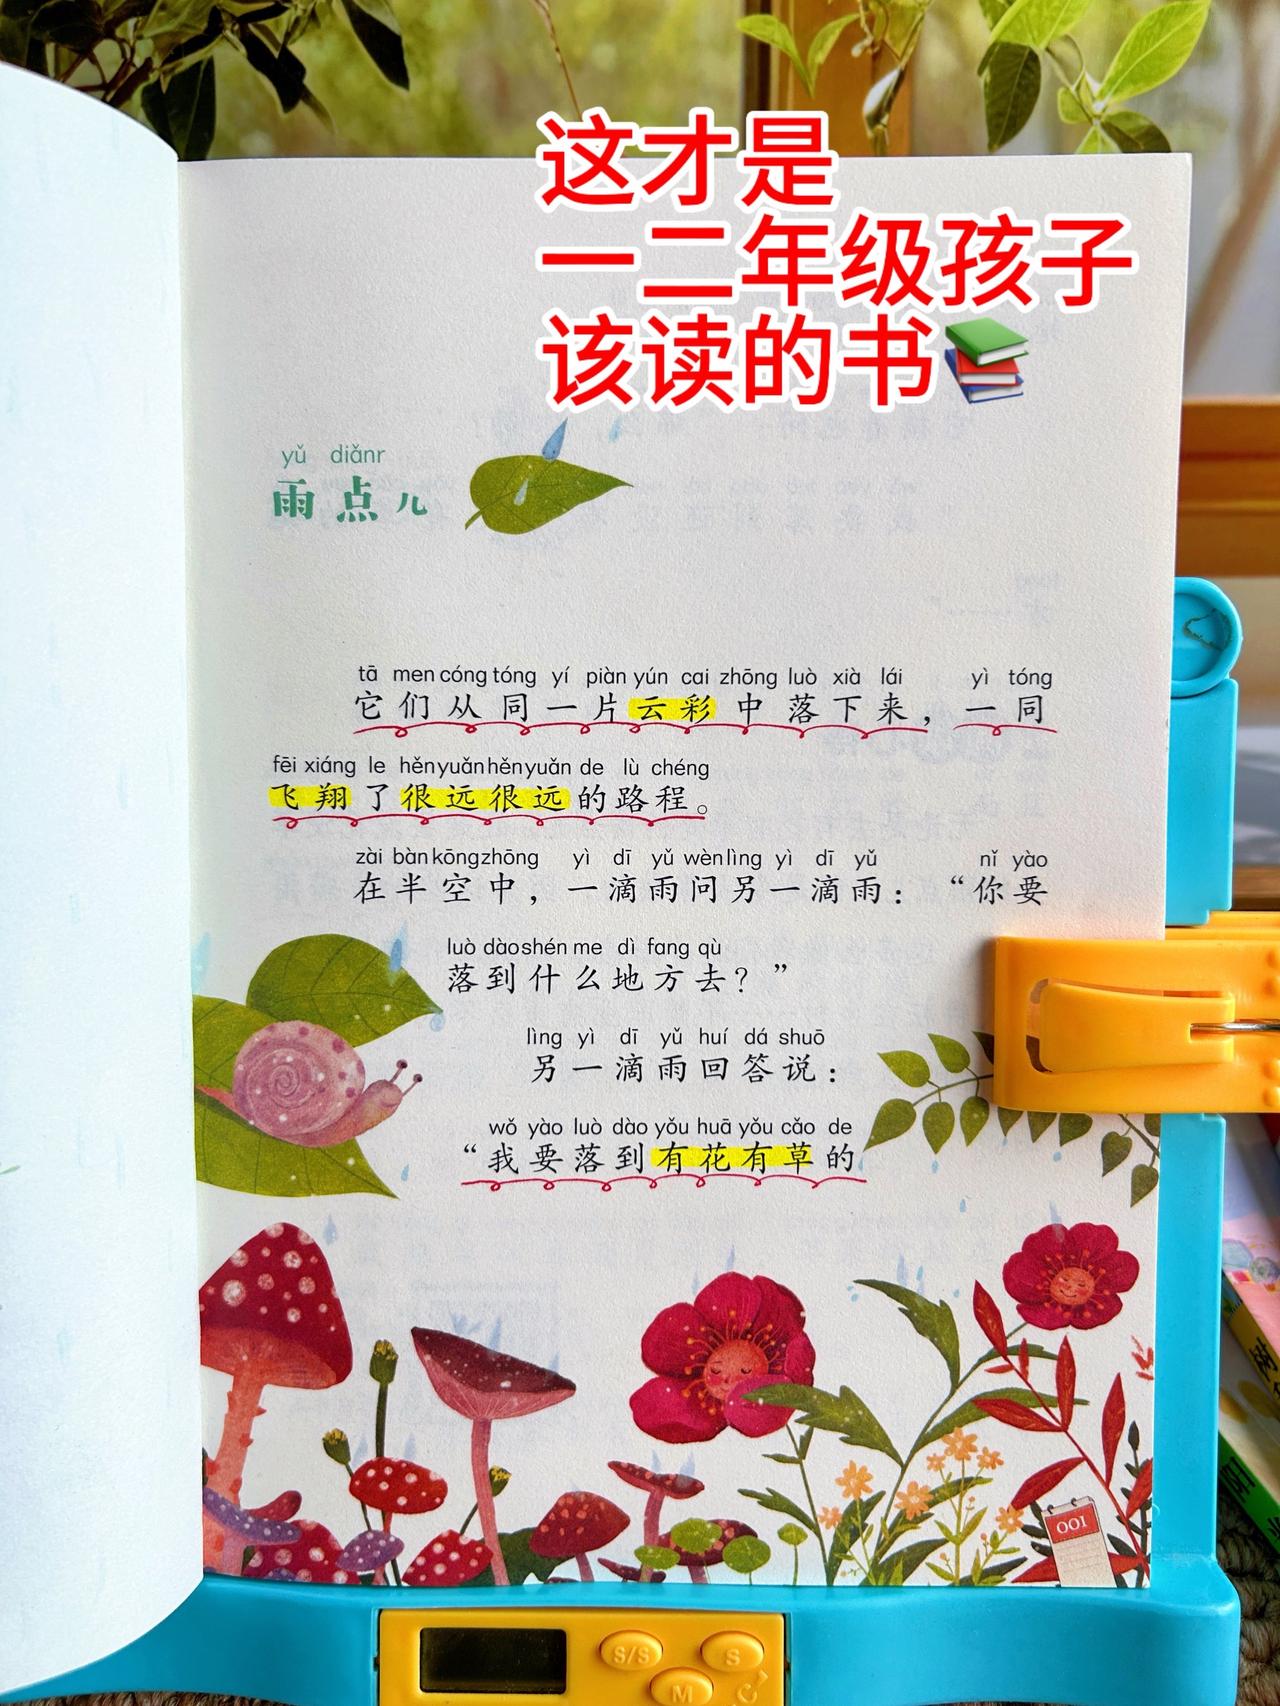 这才是
一二年级孩子
该读的书
yǔ diǎnr
雨点儿
tā men cóng tóng yí piàn yún cai zhōng luò xià lái yì tóng
它们从同一片云彩中落下来，一同
fēi xiáng le hěn yuǎn hěn yuǎn de lù chéng
飞翔了很远很远的路程。
zài bàn kōng zhōng yì dī yǔ wèn lìng yì dī yǔ nǐ yào
在半空中，一滴雨问另一滴雨：“你要
luò dào shén me dì fang qù
落到什么地方去？”
lìng yì dī yǔ huí dá shuō
另一滴雨回答说：
wǒ yào luò dào yǒu huā yǒu cǎo de
“我要落到有花有草的
001
S/S
S
M
C